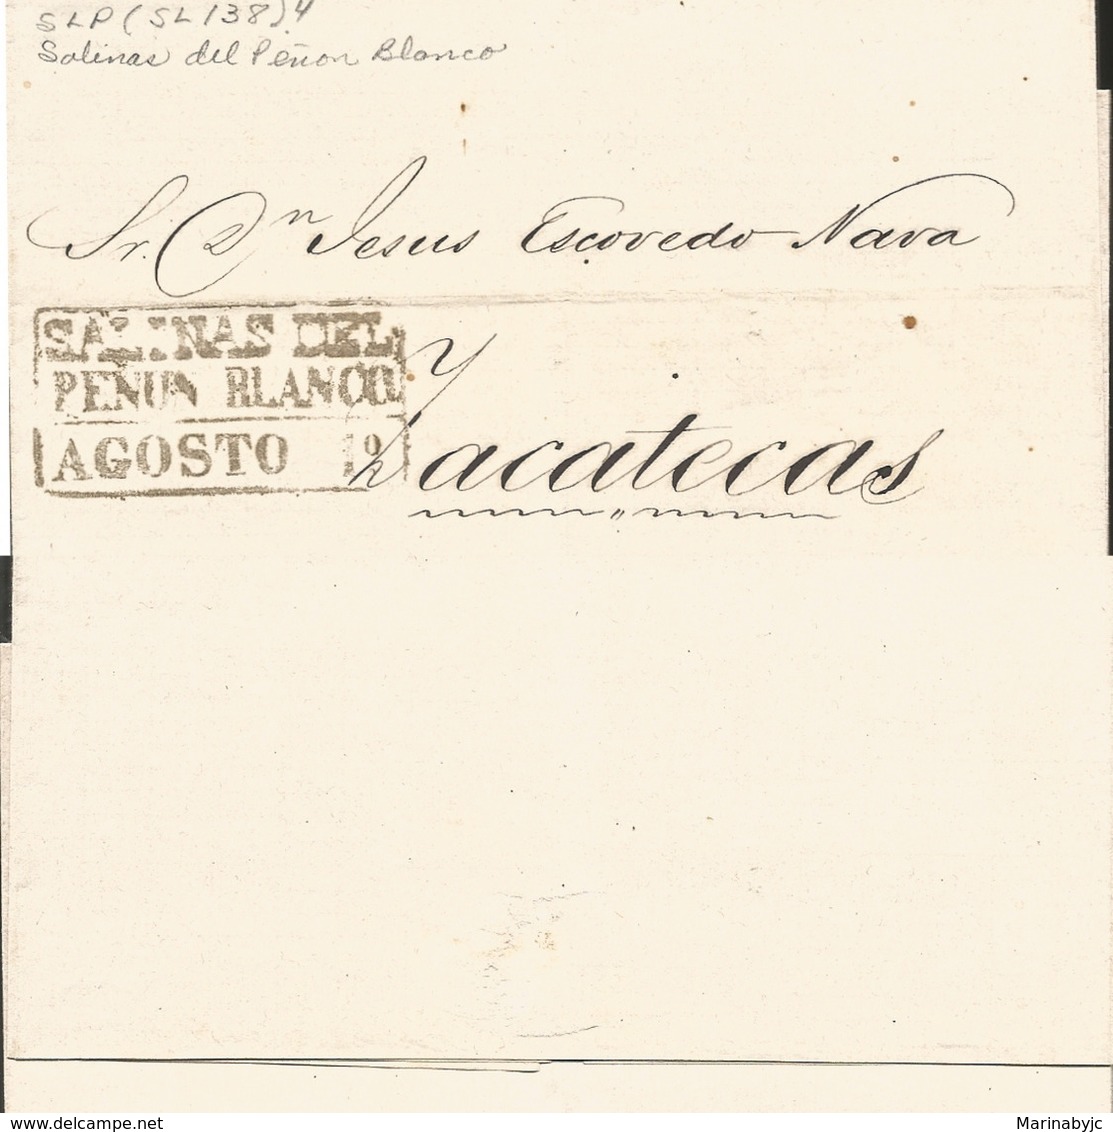 SLP (SL 138) 4
Salinas del Peñon Blanco
Sr. Dn Jesus Escovedo Nava
SALINAS DEL
PEÑON BLANCO
AGOSTO 10
Zacatecas
delcampe.net
Marinabyjc